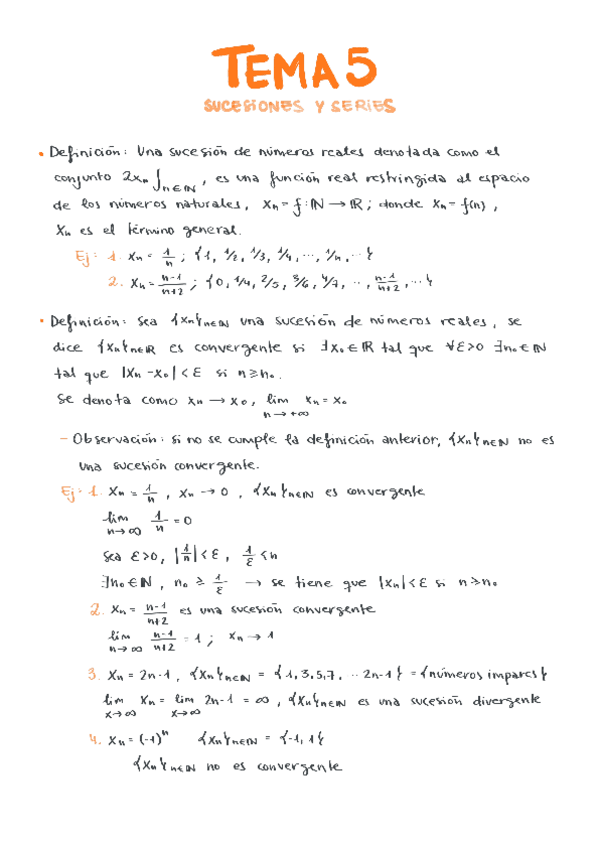 TEMA 5
SUCESIONES Y SERIES
• Definición: Una sucesión de números reales denotada como el
conjunto {xₙ}ₙ∈ℕ, es una función real restringida al espacio
de los números naturales, xₙ = f: ℕ → ℝ; donde xₙ = f(n),
xₙ es el término general.
Ej: 1. xₙ = 1/n ; {1, 1/2, 1/3, 1/4, ..., 1/n, ..}
2. xₙ = n-1/n+2 ; {0, 1/4, 2/5, 3/6, 4/7, .., n-1/n+2, ..}
• Definición: Sea {xₙ}ₙ∈ℕ una sucesión de números reales, se
dice {xₙ}ₙ∈ℝ es convergente si ∃x₀ ∈ ℝ tal que ∀ε>0 ∃n₀ ∈ ℕ
tal que |xₙ - x₀| < ε si n ≥ n₀.
Se denota como xₙ → x₀, lim n→+∞ xₙ = x₀
- Observación: si no se cumple la definición anterior, {xₙ}ₙ∈ℕ no es
una sucesión convergente.
Ej: 1. xₙ = 1/n, xₙ → 0, {xₙ}ₙ∈ℕ es convergente
lim n→∞ 1/n = 0
Sea ε>0, |1/n| < ε, 1/ε < n
∃n₀ ∈ ℕ, n₀ ≥ 1/ε → se tiene que |xₙ| < ε si n ≥ n₀
2. xₙ = n-1/n+2 es una sucesión convergente
lim n→∞ n-1/n+2 = 1; xₙ → 1
3. xₙ = 2n-1, {xₙ}ₙ∈ℕ = {1, 3, 5, 7, .. 2n-1} = {números impares}
lim x→∞ xₙ = lim x→∞ 2n-1 = ∞, {xₙ}ₙ∈ℕ es una sucesión divergente
4. xₙ = (-1)ⁿ {xₙ}ₙ∈ℕ = {-1, 1}
{xₙ}ₙ∈ℕ no es convergente